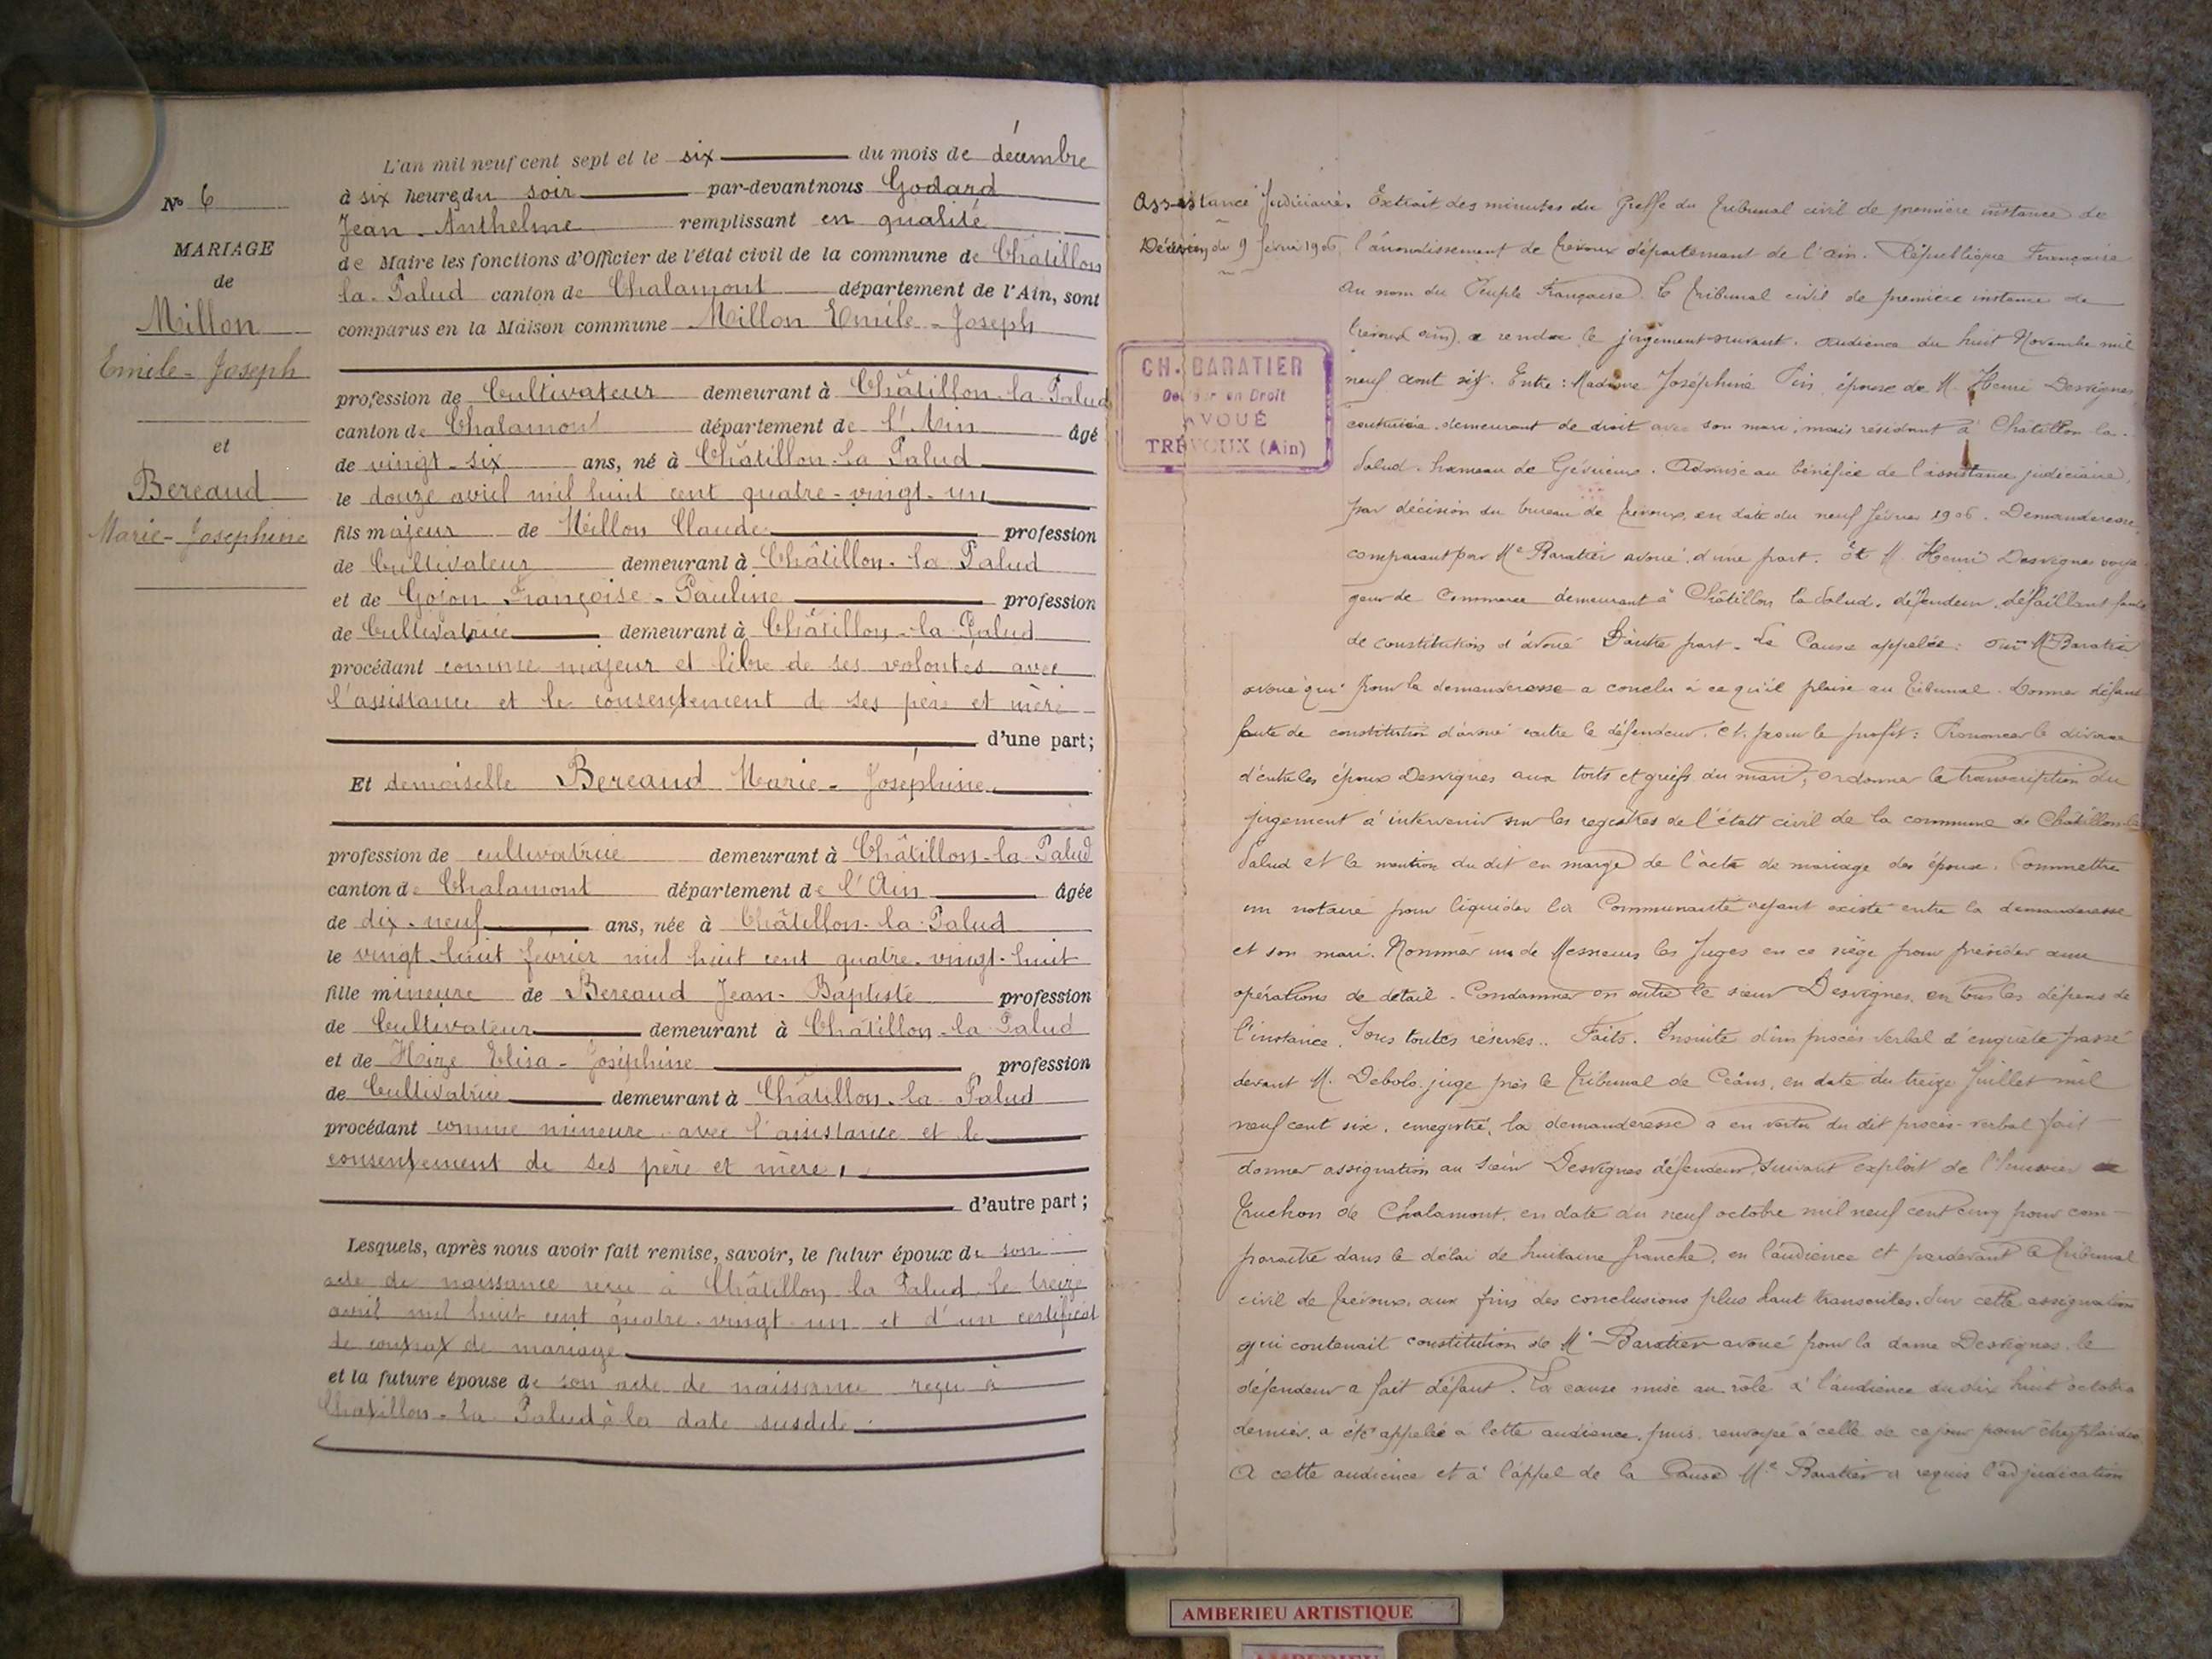 L'an mil neuf cent sept et le six du mois de décembre
à six heures du soir par-devant nous Godard
Jean-Anthelme remplissant en qualité
de Maire les fonctions d'Officier de l'état civil de la commune de Châtillon
la-Palud canton de Chalamont département de l'Ain, sont
comparus en la Maison commune Millon Emile-Joseph
N° 6
MARIAGE
de
Millon
Emile-Joseph
et
Bereaud
Marie-Josephine
profession de Cultivateur demeurant à Châtillon-la-Palud
canton de Chalamont département de l'Ain âgé
de vingt-six ans, né à Châtillon-la-Palud
le douze avril mil huit cent quatre-vingt-un
fils majeur de Millon Claude profession
de Cultivateur demeurant à Châtillon-la-Palud
et de Gojon Françoise-Pauline profession
de Cultivatrice demeurant à Châtillon-la-Palud
procédant comme majeur et libre de ses volontés avec
l'assistance et le consentement de ses père et mère
d'une part;
Et demoiselle Bereaud Marie-Joséphine
profession de cultivatrice demeurant à Châtillon-la-Palud
canton de Chalamont département de l'Ain âgée
de dix-neuf ans, née à Châtillon-la-Palud
le vingt-huit février mil huit cent quatre-vingt-huit
fille mineure de Bereaud Jean-Baptiste profession
de Cultivateur demeurant à Châtillon-la-Palud
et de Elisa-Joséphine profession
de Cultivatrice demeurant à Châtillon-la-Palud
procédant comme mineure avec l'assistance et le
consentement de ses père et mère,
d'autre part;
Lesquels, après nous avoir fait remise, savoir, le futur époux de son
acte de naissance reçu à Châtillon la Palud le treize
avril mil huit cent quatre-vingt-un et d'un certificat
de contrat de mariage
et la future épouse de son acte de naissance reçu à
Chatillon-la-Palud à la date susdite.
Assistance Judiciaire.
Décision du 9 février 1906
CH. BARATIER
Docteur en Droit
AVOUÉ
TRÉVOUX (Ain)
Extrait des minutes du Greffe du tribunal civil de première instance de
l'arrondissement de Trévoux département de l'Ain. République Française
Au nom du Peuple Française. Le tribunal civil de première instance de
Trévoux (Ain) a rendu le jugement suivant. Audience du huit Novembre mil
neuf cent six. Entre: Madame Joséphine épouse de M. Henri Desvignes
couturière, demeurant de droit avec son mari, mais résidant à Châtillon-la-
Palud, hameau de Gévrieux. Admise au bénéfice de l'assistance judiciaire,
par décision du bureau de Trévoux, en date du neuf février 1906. Demanderesse
comparant par Me Baratier avoué, d'une part. Et M. Henri Desvignes voya-
geur de Commerce demeurant à Châtillon la Palud, défendeur, défaillant faute
de constitution d'avoué D'autre part. La Cause appelée: Ouï Me Baratier
avoué qui pour la demanderesse a conclu à ce qu'il plaise au Tribunal. Donner défaut
faute de constitution d'avoué contre le défendeur. Et pour le profit: Prononcer le divorce
d'entre les époux Desvignes aux torts et griefs du mari; ordonner la transcription du
jugement à intervenir sur les registres de l'état civil de la commune de Châtillon-la
Palud et la mention du dit en marge de l'acte de mariage des époux. Commettre
un notaire pour liquider la Communauté ayant existé entre la demanderesse
et son mari. Nommer un de Messieurs les Juges en ce siège pour présider aux
opérations de détail. Condamner en outre le sieur Desvignes, en tous les dépens de
l'instance. Sous toutes réserves. Faits. Ensuite d'un procès verbal d'enquête passé
devant M. Debolo, juge près le Tribunal de Céans, en date du treize Juillet mil
neuf cent six, enregistré, la demanderesse a en vertu du dit procès-verbal fait
donner assignation au sieur Desvignes défendeur, suivant exploit de l'huissier
Truchon de Chalamont, en date du neuf octobre mil neuf cent cinq pour com-
paraître dans le délai de huitaine franche, en l'audience et pardevant le tribunal
civil de Trévoux, aux fins des conclusions plus haut transcrites. Sur cette assignation
qui contenait constitution de Me Baratier avoué pour la dame Desvignes, le
défendeur a fait défaut. La cause mise au rôle à l'audience du dix huit octobre
dernier, a été appelée à cette audience, puis renvoyée à celle de ce jour pour être plaidée
A cette audience et à l'appel de la Cause Me Baratier a requis l'adjudication
AMBERIEU ARTISTIQUE
AMBERIEU